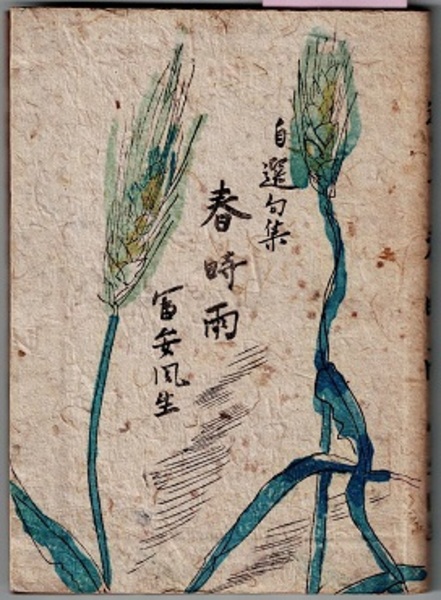 自選句集
春時雨
富安風生